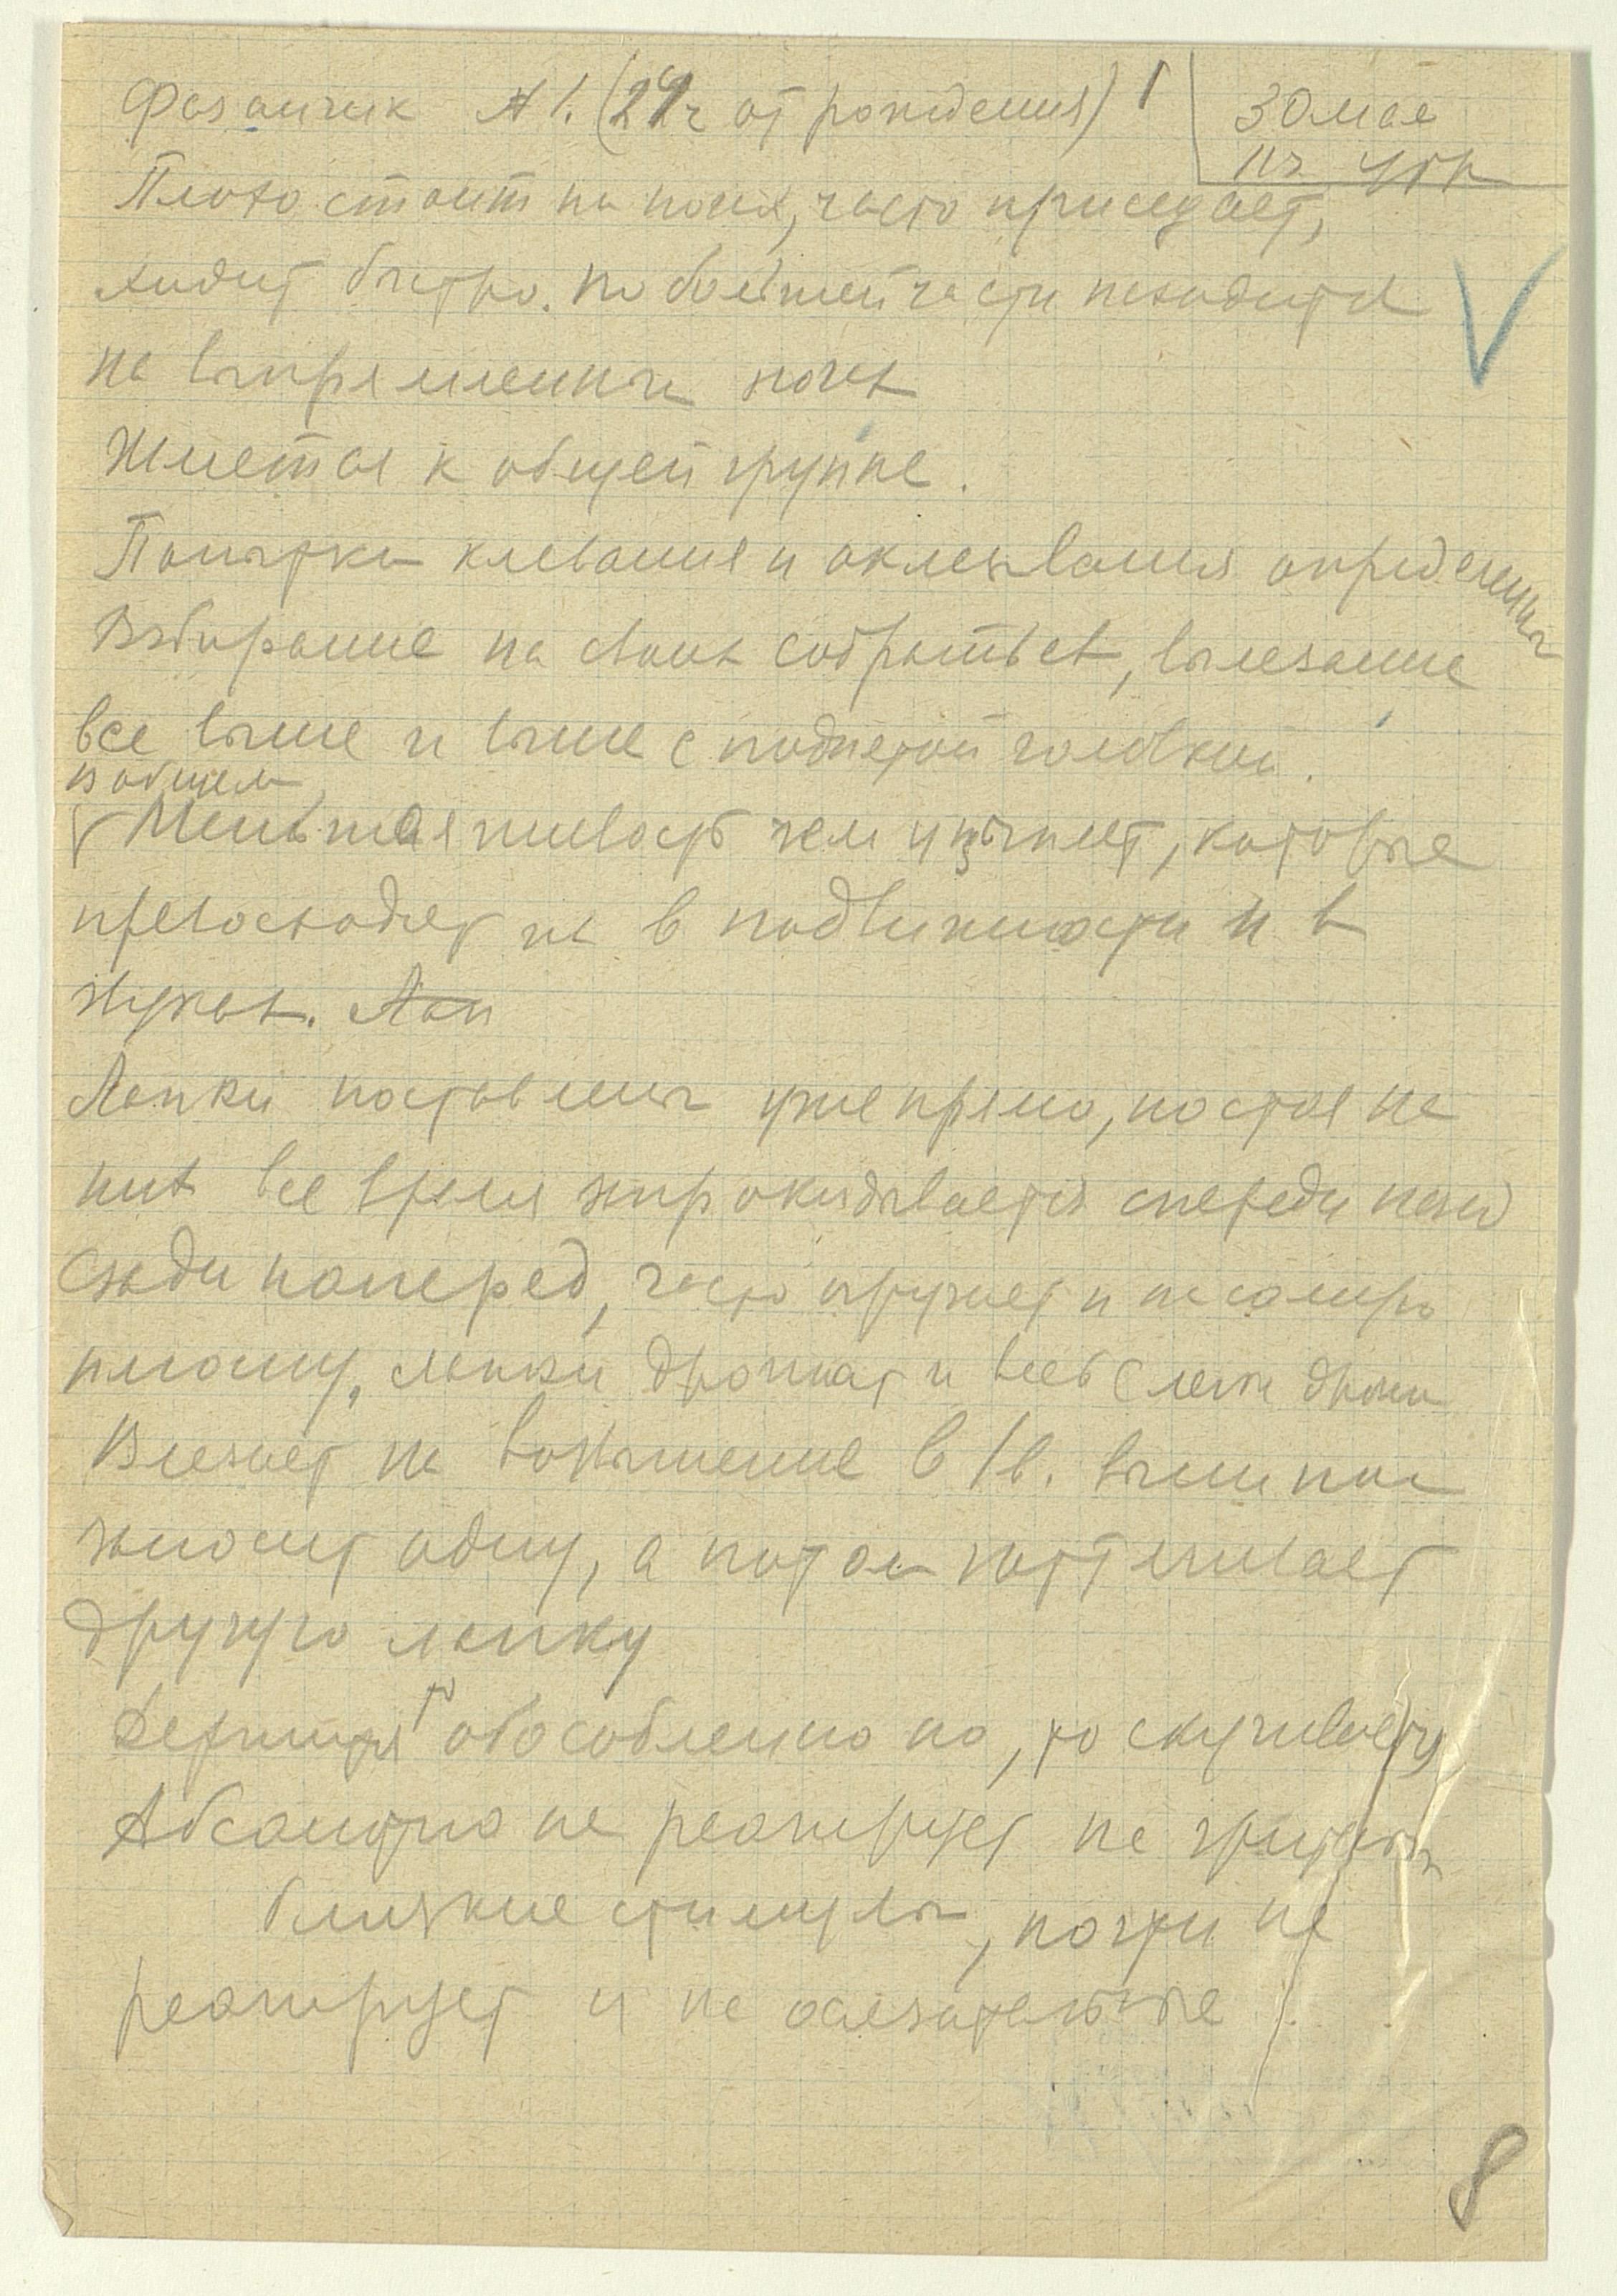 Фазанчик № 1. (24ч от рождения) 1
30 мая
11ч утр
Плохо стоит на ногах, часто приседает,
ходит быстро. По большей части находится
на выпрямленных ногах
Жмется к общей группе.
Попытки клевания и оклевывания определенны
Взбирание на своих собратьев, вылезание
все выше и выше с поднятой головкой.
В общем
Меньшая живость чем у цыплят, которые
превосходят их в подвижности и в
звуках. Лап
Лапки поставлены уже прямо, но стоя на
них все время опрокидывается спереди назад
сзади наперед, часто
лапки дрожат и весь слегка дрожит
Влезает на возвышение в 1 в. вышины
заносит одну, а потом подтягивает
другую лапку
Держится то обособленно но, то скучивается
Абсолютно не реагирует на зрительн
близкие стимулы, почти не
реагирует и на осязательные
8